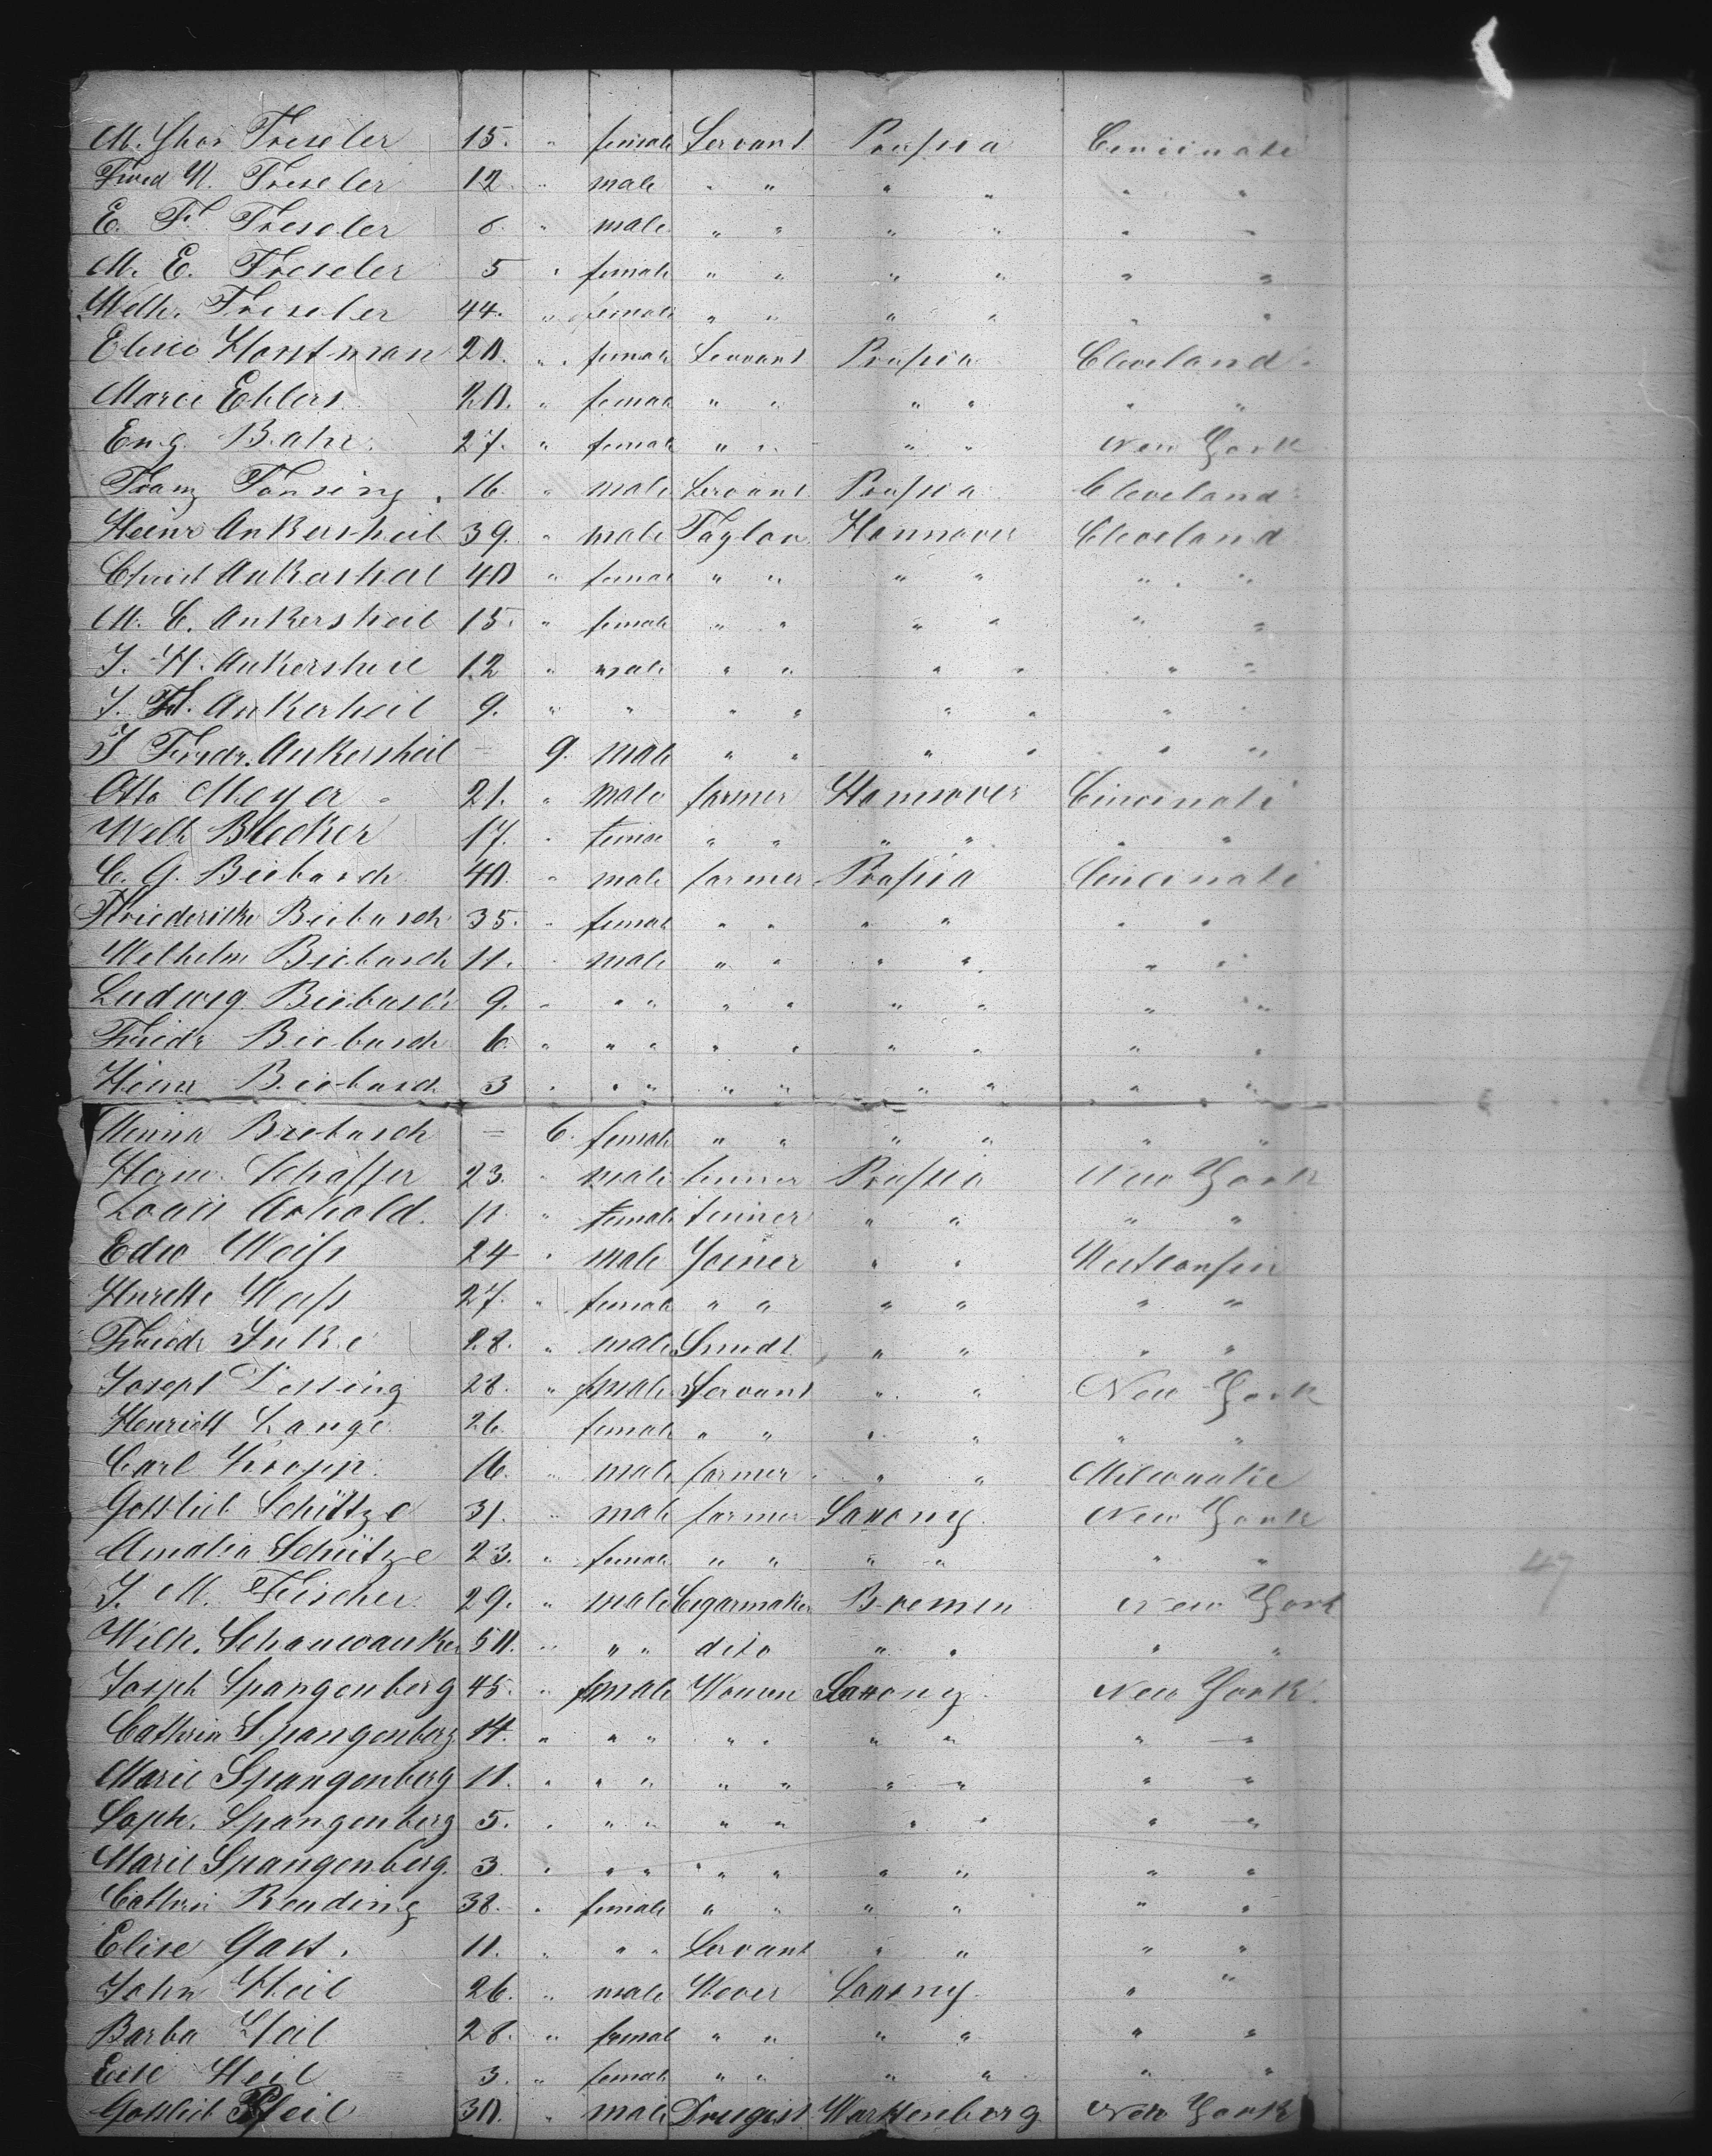 M. Treseler 15. " female Servant Prussia Cincinati
Fried H. Treseler 12 " male " " " " " "
E. F. Treseler 6. " male " " " " " "
M. E. Treseler 5 " female " " " " " "
Welh. Treseler 44. " female " " " " " "
Elise Horstman 20. " female Servant Prussia Cleveland
Marie Ehlers 20. " female " " " " " "
Eng. Bahr. 27. " female " " " " New York
Franz Tonsing 16. " male Servant Prussia Cleveland
Heinr Ankersheil 39. " male Taylor Hannover Cleveland
Christ Ankersheil 40 " female " " " " " "
M. C. Ankersheil 15. " female " " " " " "
J. H. Ankersheil 12 " male " " " " " "
J. H. Ankerheil 9. " " " " " " " "
J Friedr. Ankersheil = 9. male " " " " " "
Otto Meyer 21. " male farmer Hannover Cincinati
Welh Blecker 17. " femae " " " " " "
C. G. Biebusch 40. " male farmer Prussia Cincinati
Friederike Biebusch 35. " female " " " " " "
Welhelm Biebusch 11. " male " " " " " "
Ludweg Biebusch 9. " " " " " " " " "
Friedr Biebusch 6. " " " " " " " " "
Heinr Biebusch 3 " " " " " " " " "
Minna Biebusch = 6. female " " " " " "
Herm. Schaffer 23. " male Prussia New York
Louis Arhold. 11. " female " " " "
Edw Weiss 24 " male Joiner " "
Weiss 27. " female " " " " " "
Friedr Juke 28. " male Smidt " " " "
Joseph Dessing 28. " male Servant " " New York
Henriett Lange 26. female " " " " " "
Carl Kropp. 16. " male farmer " " Milwaukie
Gottlieb Schüttze 31. " male farmer Saxony New York
Amalia Schütze 23. " female " " " " " "
J. M. Fischer 29. " male Cegarmaker Bremen New York
Wilh. Schauwanker 50. " " " dito " " " "
Joseph Spangenberg 45. " female Women Saxony New York.
Cathrin Spangenberg 14. " " " " " " " " "
Marie Spangenberg 11. " " " " " " " " "
Soph. Spangenberg 5. " " " " " " " " "
Marie Spangenberg. 3. " " " " " " " " "
Cathrin Reuding 38. " female " " " " " "
Elise Gast. 11. " " " Servant " " " "
John Heil 26. " male Wever Saxony " "
Barba Heil 28. " female " " " " " "
Heil 3. " female " " " " " "
Gottlieb Pfeil 30. " male Drugist Wurttenberg New York
47